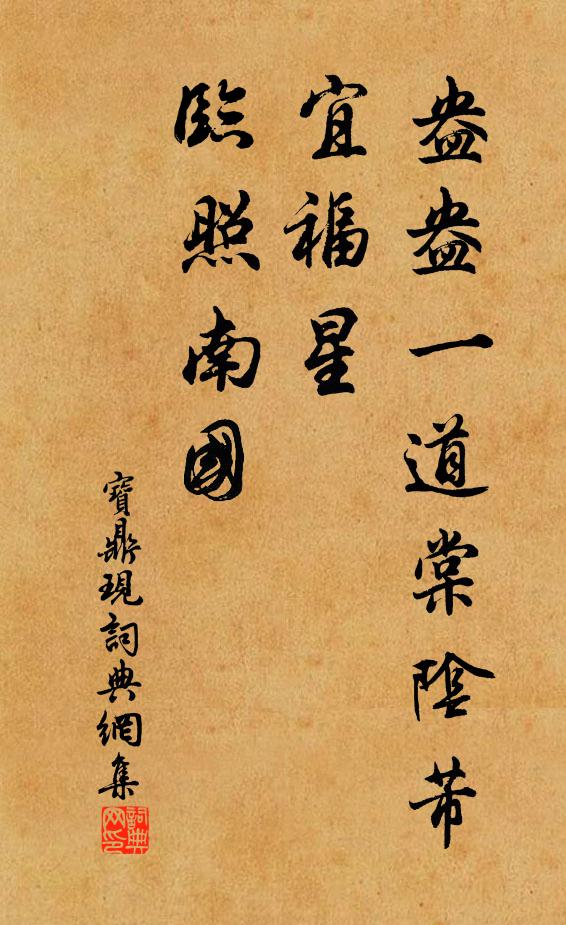 盎盎一道棠陰芾
宜福星
臨照南國
寶鼎現詞典網集
詞典
网印